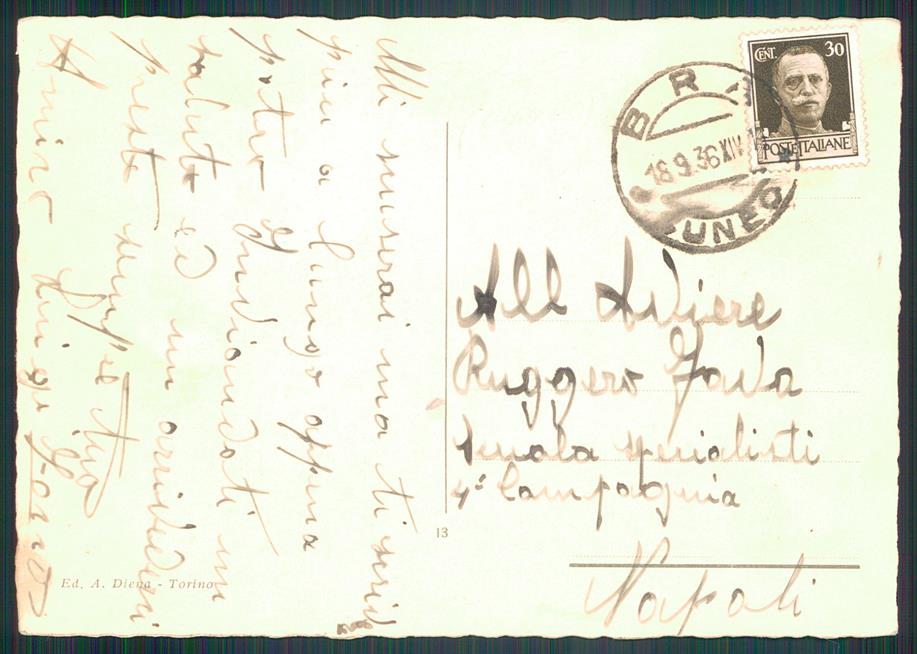 Mi scuserai ma ti scrivo
più a lungo appena
potrò Inviandoti un
saluto ed un arrivederci
presto sempre tuo
Amico Luigi
Ed. A. Diena - Torino
13
CENT. 30
POSTE ITALIANE
BRA
18.9.36 XIV
CUNEO
All Aviere
Ruggero
Scuola specialisti
4ª Compagnia
Napoli